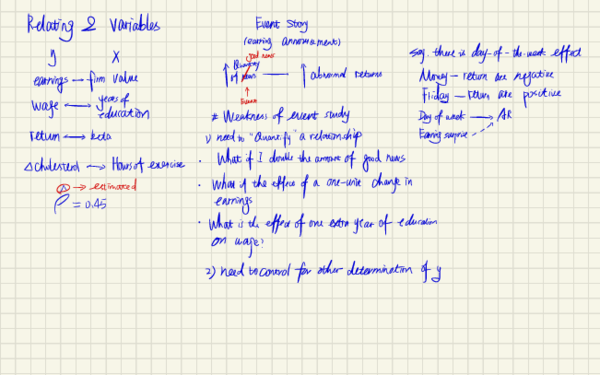 Relating 2 variables
y X
earnings — firm value
wage ⟷ years of education
return ⟷ beta
Δ cholesterol ⟶ Hours of exercise
→ estimated
= 0.45
Event Story
(earning announcement)
good news
↑ Quantity of news — ↑ abnormal returns
* Weakness of event study
1) need to "Quantify" a relationship
· What if I double the amount of good news
· What if the effect of a one-unit change in
earnings
· What is the effect of one extra year of education
on wage?
2) need to control for other determination of y
say. there is day-of-the week effect
Money — return are negative
Friday — return are positive
Day of week ⟶ AR
Earning surprise